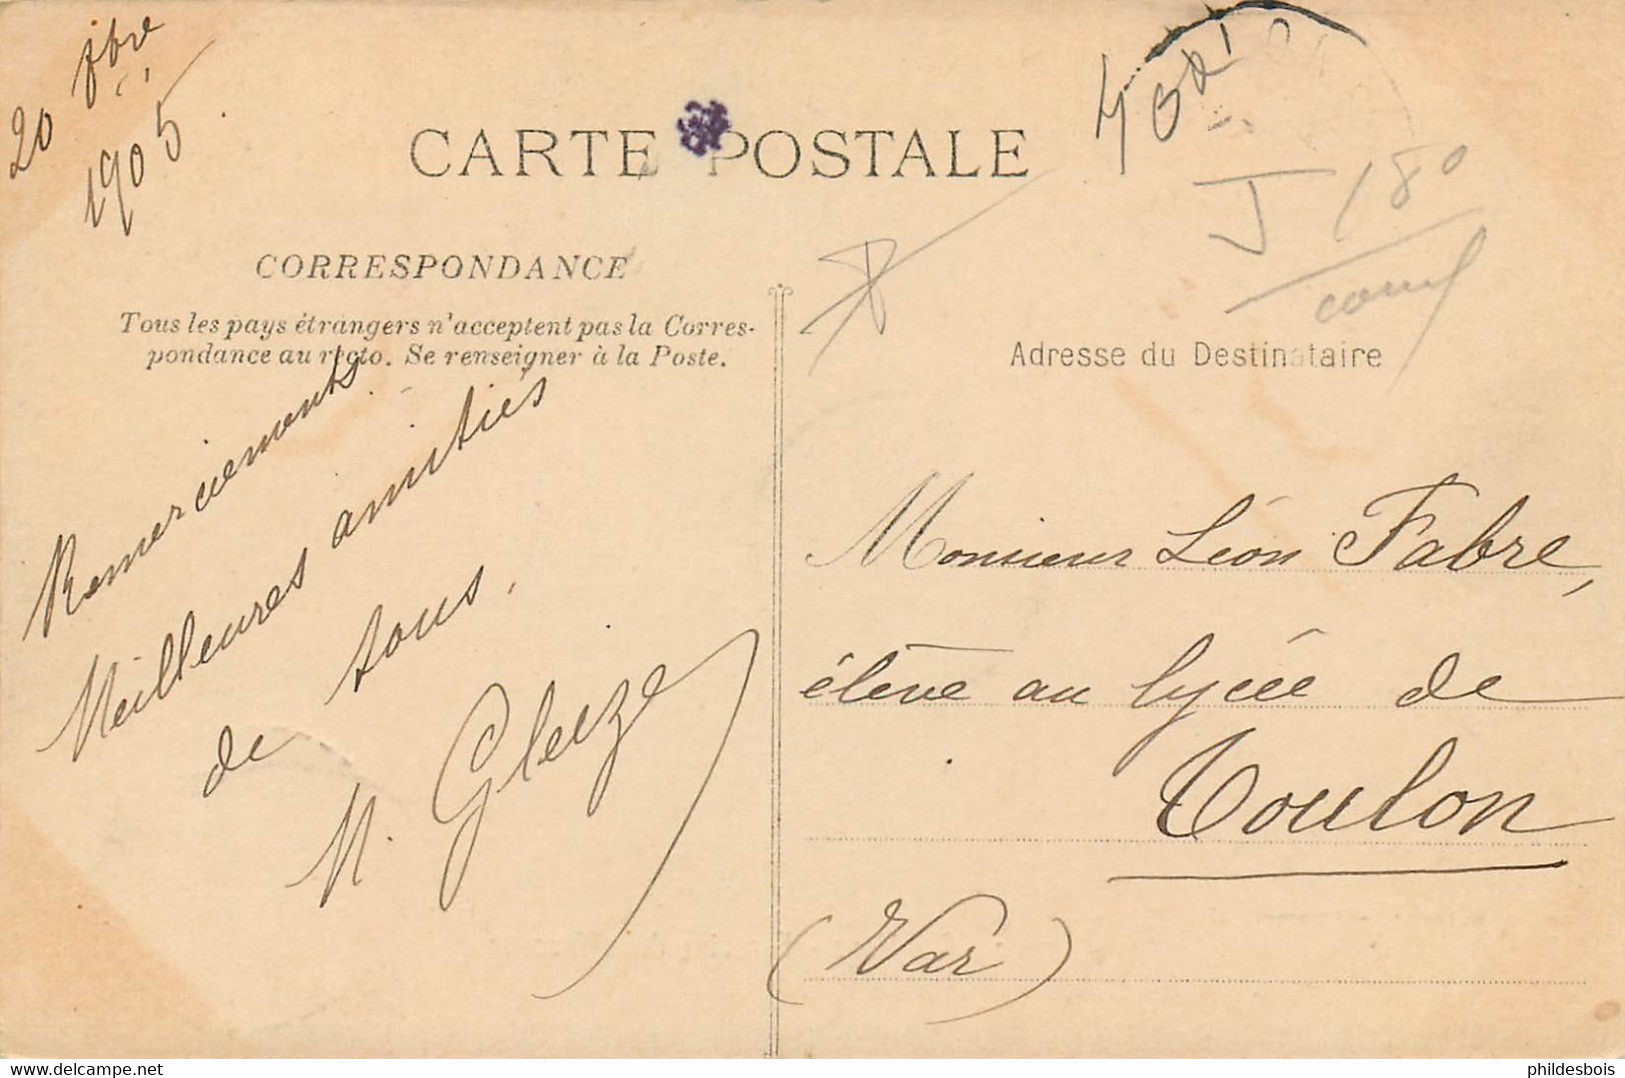 20 8bre
1905
CARTE POSTALE
CORRESPONDANCE
Tous les pays étrangers n'acceptent pas la Corres-
pondance au recto. Se renseigner à la Poste.
Remerciements
Meilleures amitiés
de tous.
M. Gleize
J 180
Adresse du Destinataire
Monsieur Léon Fabre,
élève au lycée de
Toulon
(Var)
Delcampe.net
phildesbois